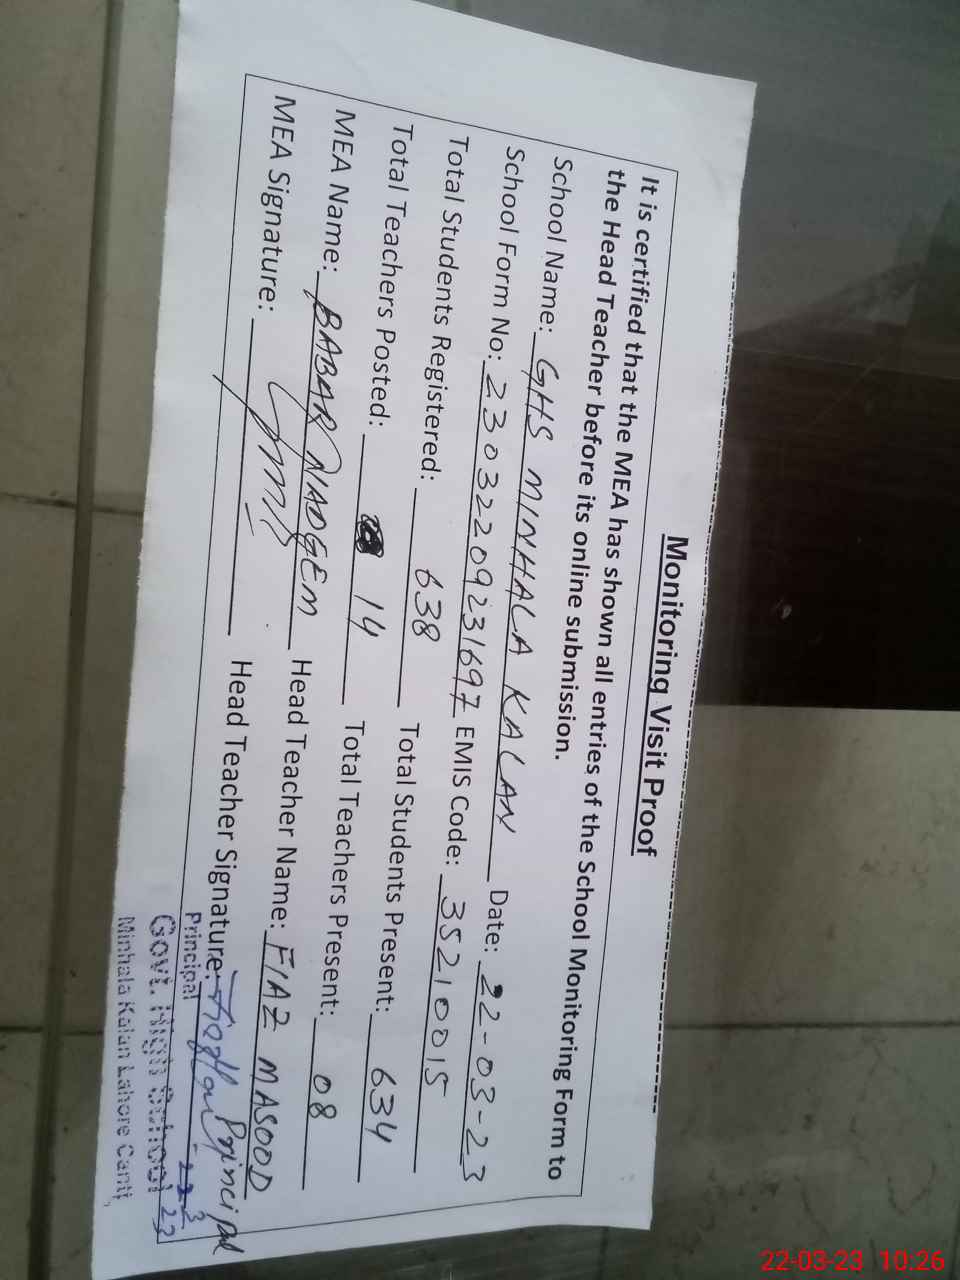 Monitoring Visit Proof
It is certified that the MEA has shown all entries of the School Monitoring Form to
the Head Teacher before its online submission.
School Name: GHS MINHALA KALAN Date: 22-03-23
School Form No: 23032209231697 EMIS Code: 35210015
Total Students Registered: 638 Total Students Present: 634
Total Teachers Posted: 14 Total Teachers Present: 08
MEA Name: BABAR NADEEM Head Teacher Name: FIAZ MASOOD
MEA Signature: Head Teacher Signature: Principal
Principal
Govt. High School
Minhala Kalan Lahore Cantt,
22-03-23 10:26